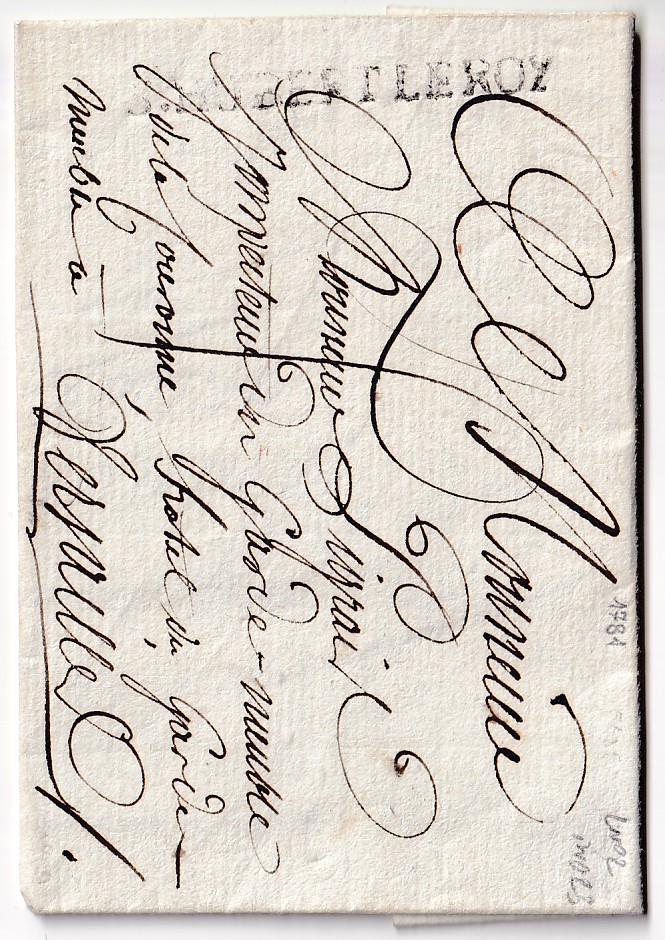 S.LAMBERT LE ROY
Monsieur
Monsieur Livrai
Inspecteur du Garde-meuble
de la Couronne, hotel du Garde
meuble a
Versailles
1781